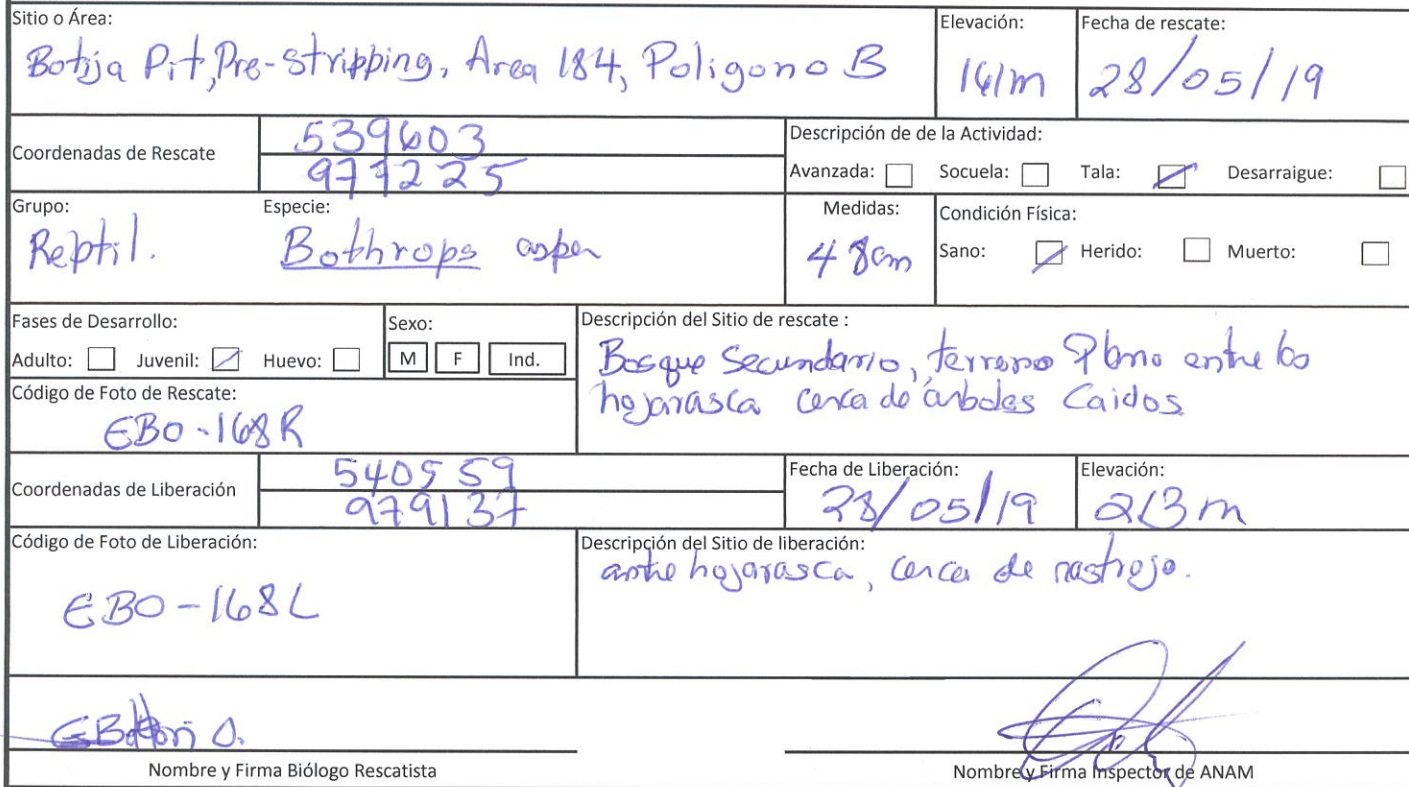 Sitio o Área:
Botija Pit, Pre-stripping, Area 184, Poligono B
Elevación:
161m
Fecha de rescate:
28/05/19
Coordenadas de Rescate
539603
977225
Descripción de de la Actividad:
Avanzada: Socuela: Tala: Desarraigue:
Grupo:
Reptil.
Especie:
Bothrops asper
Medidas:
48cm
Condición Física:
Sano: Herido: Muerto:
Fases de Desarrollo:
Adulto: Juvenil: Huevo:
Sexo:
M F Ind.
Código de Foto de Rescate:
EBO-168R
Descripción del Sitio de rescate :
Bosque Secundario, terreno Plano entre la
hojarasca cerca de arboles Caidos
Coordenadas de Liberación
540559
979137
Fecha de Liberación:
28/05/19
Elevación:
213m
Código de Foto de Liberación:
EBO-168L
Descripción del Sitio de liberación:
entre hojarasca, cerca de rastrojo.
Nombre y Firma Biólogo Rescatista
Nombre y Firma Inspector de ANAM